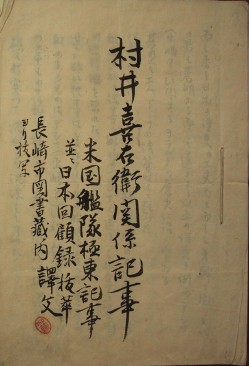 村井喜右衛関係記事
米国艦隊極東記事
並ニ日本回顧録抜華
長崎市図書蔵内譯文
ヨリ抜写